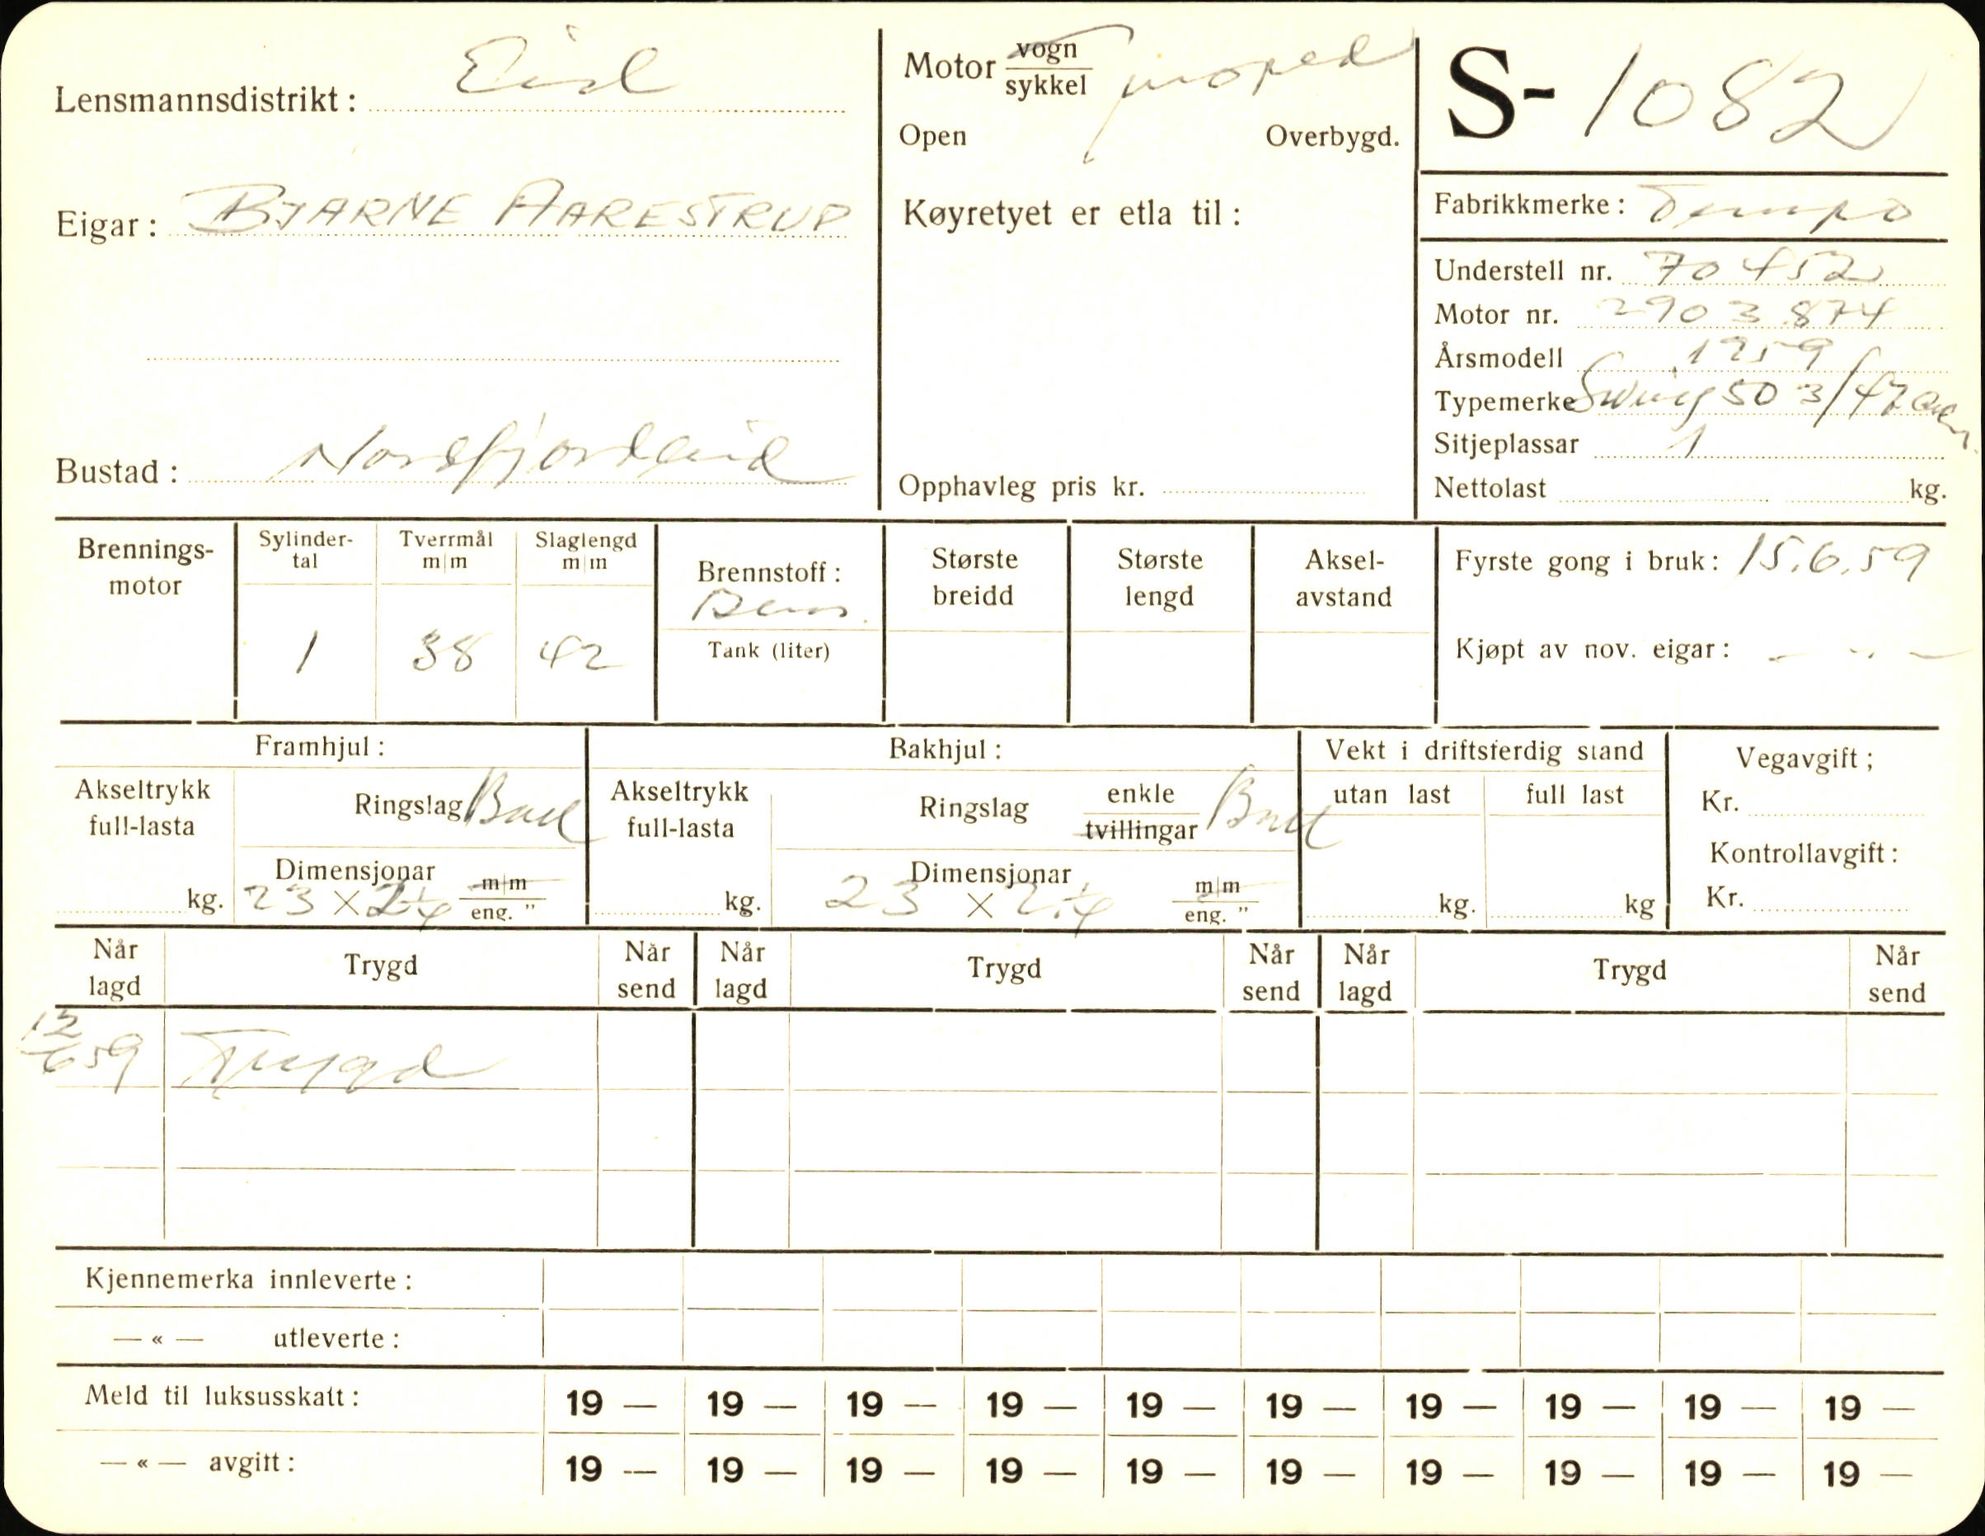 Lensmannsdistrikt: Eid
Motor vogn/sykkel moped
Open Overbygd.
S-1082
Eigar: BJARNE AARESTRUP
Køyretyet er etla til:
Fabrikkmerke: Tempo
Understell nr. 70452
Motor nr. 2903874
Årsmodell 1959
Typemerke Swing 50 3/47 ccm
Sitjeplassar 1
Bustad: Nordfjordeid
Opphavleg pris kr.
Nettolast kg.
Brennings-motor
Sylinder-tal 1
Tverrmål m/m 38
Slaglengd m/m 42
Brennstoff: Bens.
Tank (liter)
Største breidd
Største lengd
Aksel-avstand
Fyrste gong i bruk: 15.6.59
Kjøpt av nov. eigar: - " -
Framhjul:
Akseltrykk full-lasta kg.
Ringslag Ball
Dimensjonar 23 x 2 1/4 m/m eng. "
Bakhjul:
Akseltrykk full-lasta kg.
Ringslag enkle tvillingar Ball
Dimensjonar 23 x 2 1/4 m/m eng. "
Vekt i driftsferdig stand
utan last kg. full last kg
Vegavgift;
Kr.
Kontrollavgift:
Kr.
Når lagd Trygd Når send Når lagd Trygd Når send Når lagd Trygd Når send
12/6 59 Trygd
Kjennemerka innleverte:
— « — utleverte:
Meld til luksusskatt: 19 — 19 — 19 — 19 — 19 — 19 — 19 — 19 — 19 — 19 —
— « — avgitt: 19 — 19 — 19 — 19 — 19 — 19 — 19 — 19 — 19 — 19 —